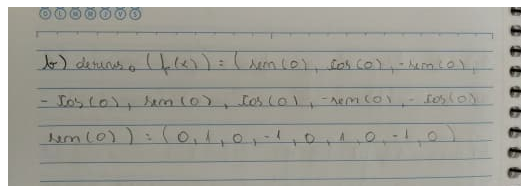 D L M M J V S
b) derivas₀ (f(x)) = (sen(0), cos(0), -sen(0),
- cos(0), sen(0), cos(0), -sen(0), - cos(0)
sen(0)) = (0, 1, 0, -1, 0, 1, 0, -1, 0)